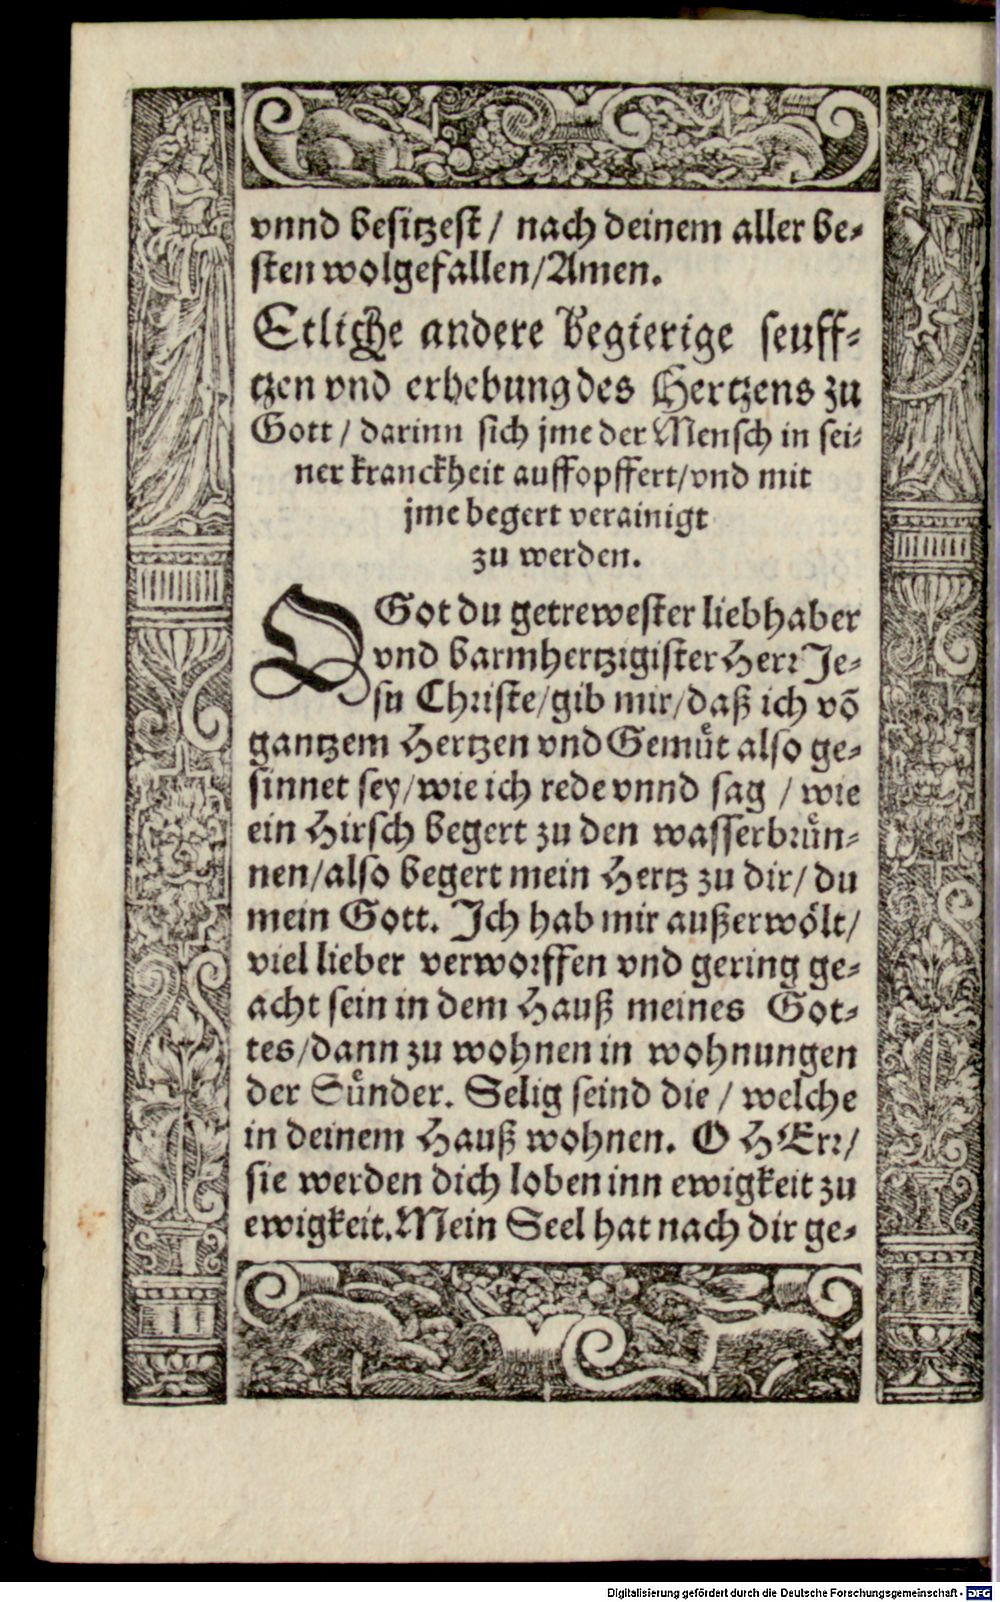 vnnd besitzest / nach deinem aller be⸗
sten wolgefallen/Amen.
Etliche andere begierige seuff⸗
tzen vnd erhebung des Hertzens zu
Gott / darinn sich jme der Mensch in sei⸗
ner kranckheit auffopffert/vnd mit
jme begert verainigt
zu werden.
O Got du getrewester liebhaber
vnd barmhertzigister Herr Je⸗
su Christe/gib mir/daß ich võ
gantzem Hertzen vnd Gemuͤt also ge⸗
sinnet sey/wie ich rede vnnd sag / wie
ein Hirsch begert zu den wasserbruͤn⸗
nen/also begert mein Hertz zu dir/ du
mein Gott. Ich hab mir außerwoͤlt/
viel lieber verworffen vnd gering ge⸗
acht sein in dem Hauß meines Got⸗
tes/dann zu wohnen in wohnungen
der Suͤnder. Selig seind die / welche
in deinem Hauß wohnen. O HErr/
sie werden dich loben inn ewigkeit zu
ewigkeit. Mein Seel hat nach dir ge⸗
Digitalisierung gefördert durch die Deutsche Forschungsgemeinschaft - DFG